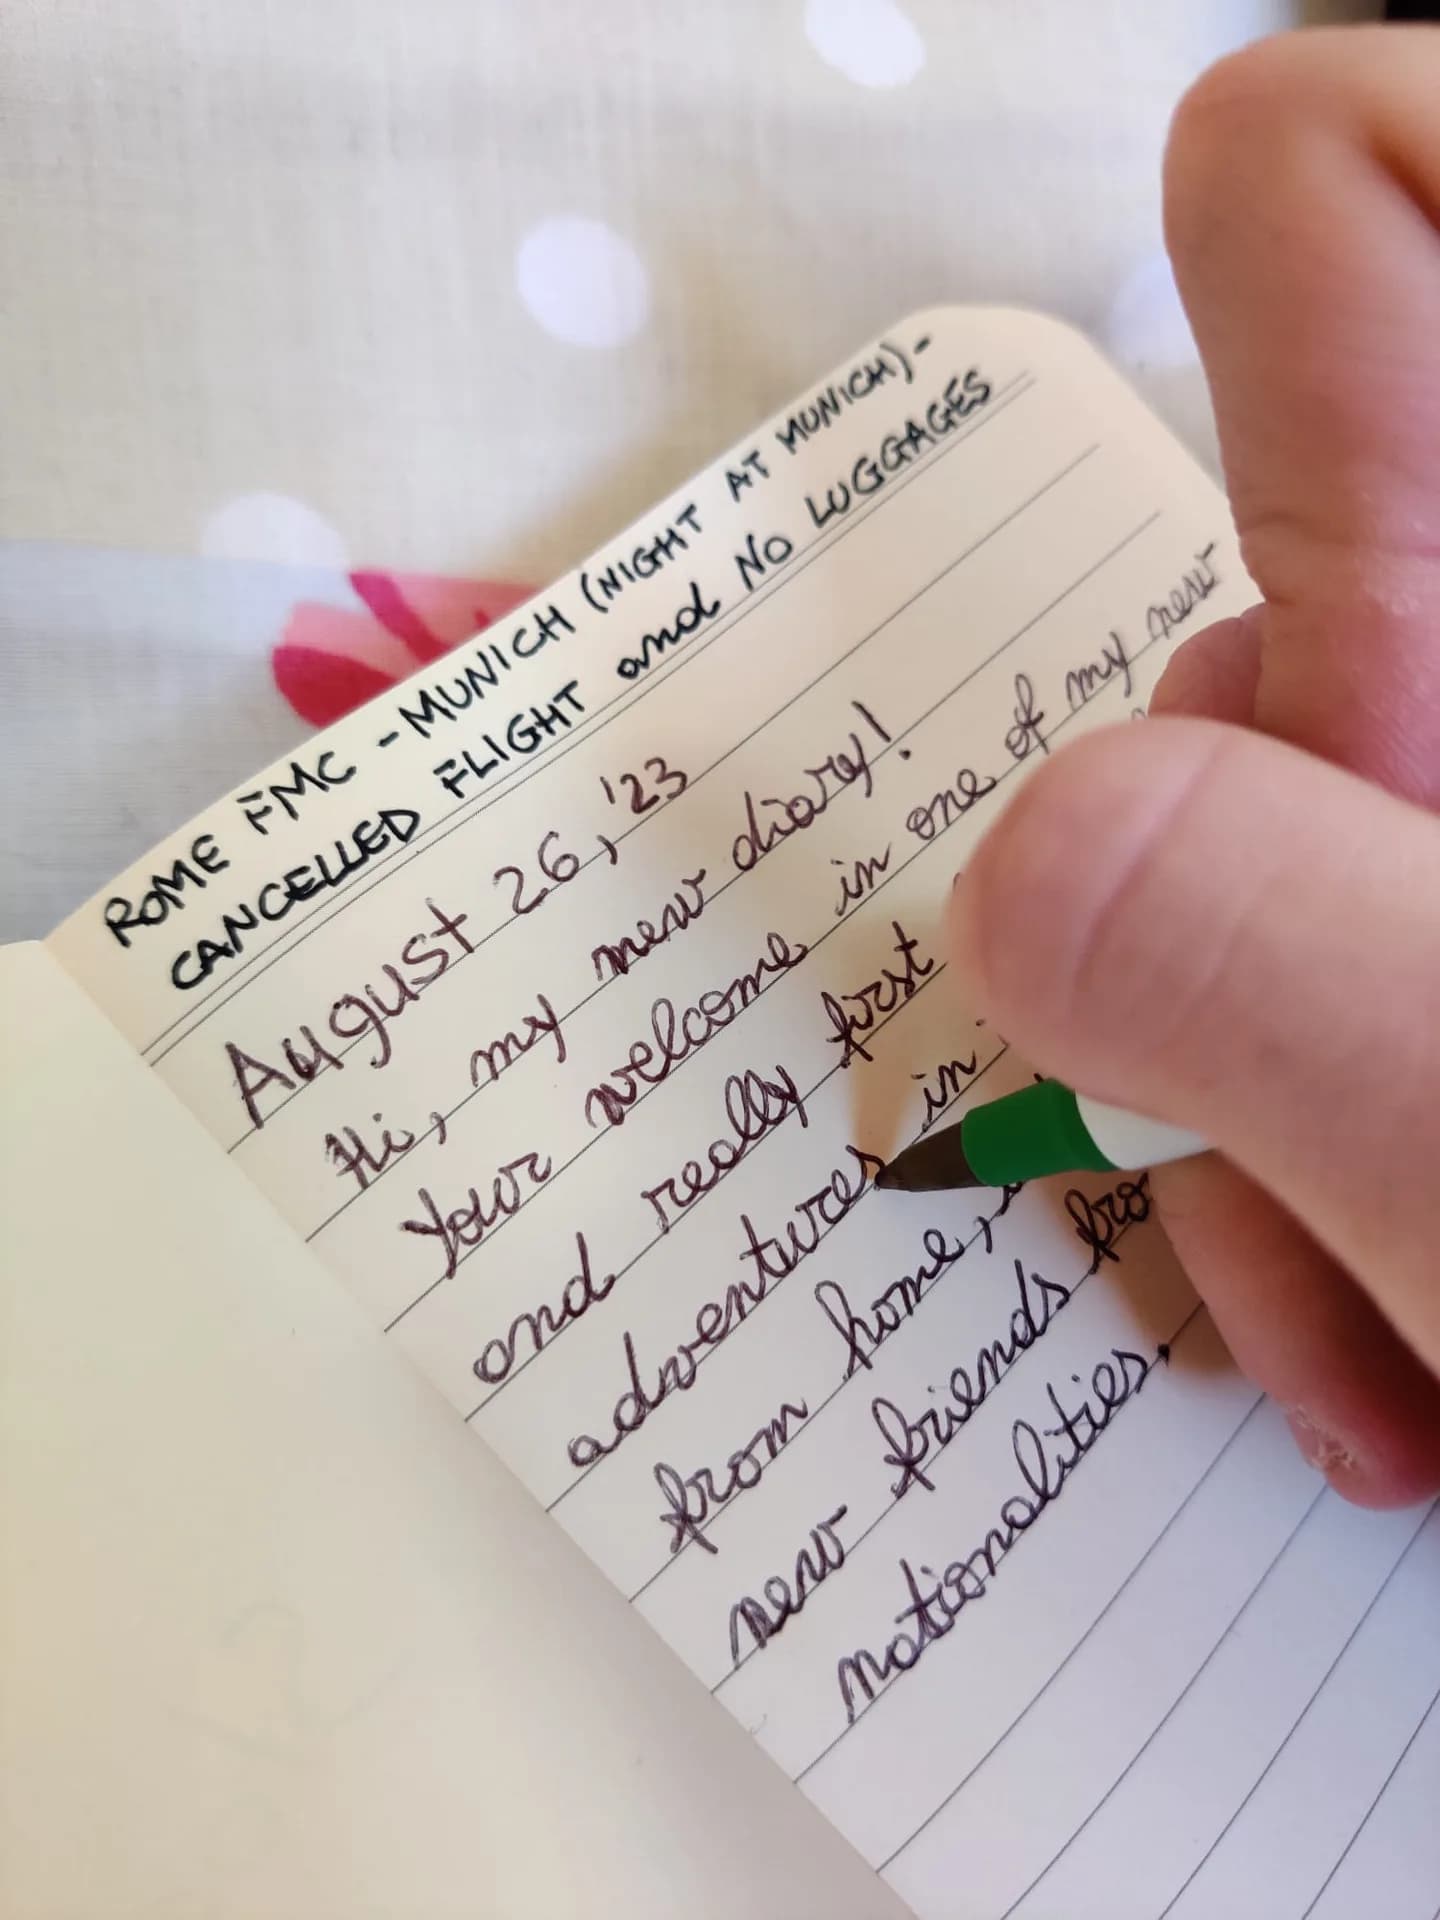 ROME FMC - MUNICH (NIGHT AT MUNICH) -
CANCELLED FLIGHT and NO LUGGAGES
August 26, '23
Hi, my new diary!
Your welcome in one of my new
and really first
adventures in
from home,
new friends fro
nationalities.